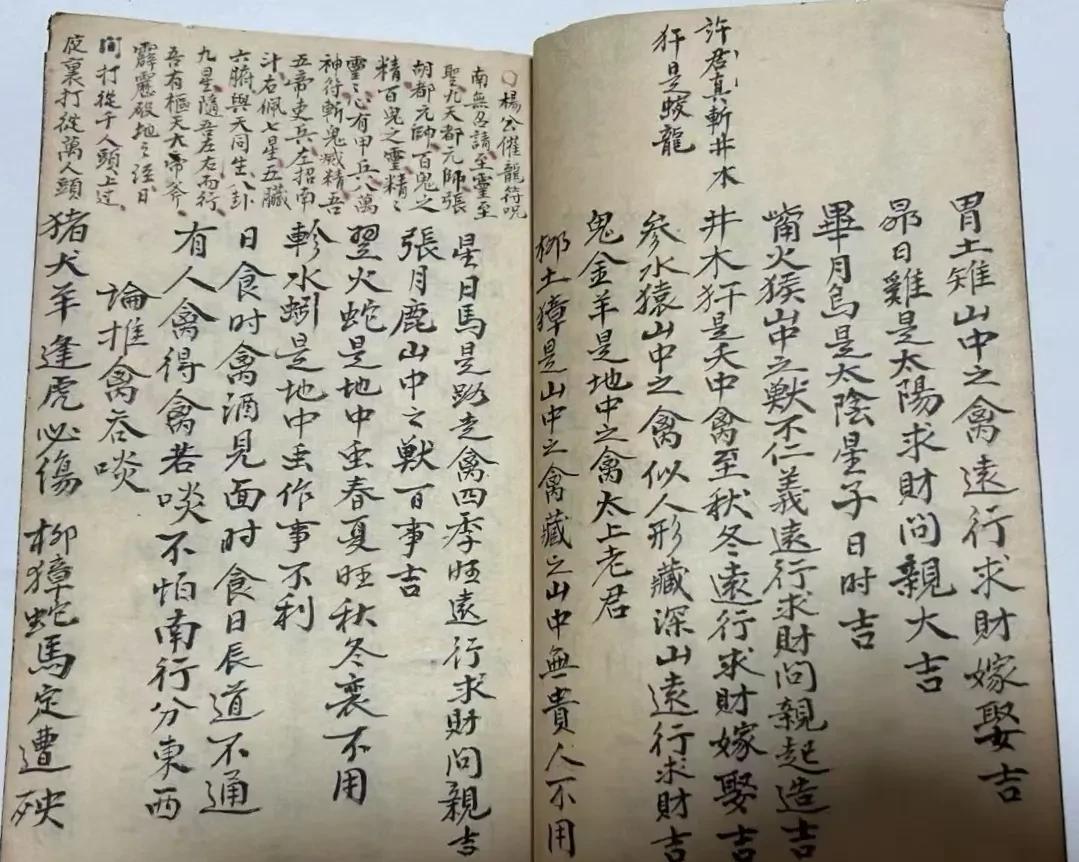 許君真斬井木
犴是蛟龍
胃土雉山中之禽遠行求財嫁娶吉
昴日雞是太陽求財问親大吉
畢月烏是太陰星子日时吉
嘴火猴山中之獸不仁義遠行求財问親起造吉
井木犴是天中禽至秋冬遠行求財嫁娶吉
參水猿山中之禽似人形藏深山遠行求财吉
鬼金羊是地中之禽太上老君
柳土獐是山中之禽藏之山中無貴人不用
○楊公催龍符呪
南無召請至靈至
聖九天都元師張
胡都元帥百鬼之
精百鬼之靈精々
靈々心有甲兵八萬
神符斬鬼滅精吾
五帝吏兵左招南
斗右佩七星五臟
六腑與天同生八卦
九星隨吾左右而行
吾有樞天大帝斧
霹靂破地之涇日
间打從千人頭上过
夜裏打從萬人頭
星日馬是路走禽四季旺遠行求财问親吉
張月鹿山中之獸百事吉
翌火蛇是地中虫春夏旺秋冬衰不用
軫水蚓是地中虫作事不利
日食时禽酒見面时食日辰道不通
有人禽得禽若啖不怕南行分東西
論推禽吞啖
猪犬羊逢虎必傷 柳獐蛇馬定遭殃